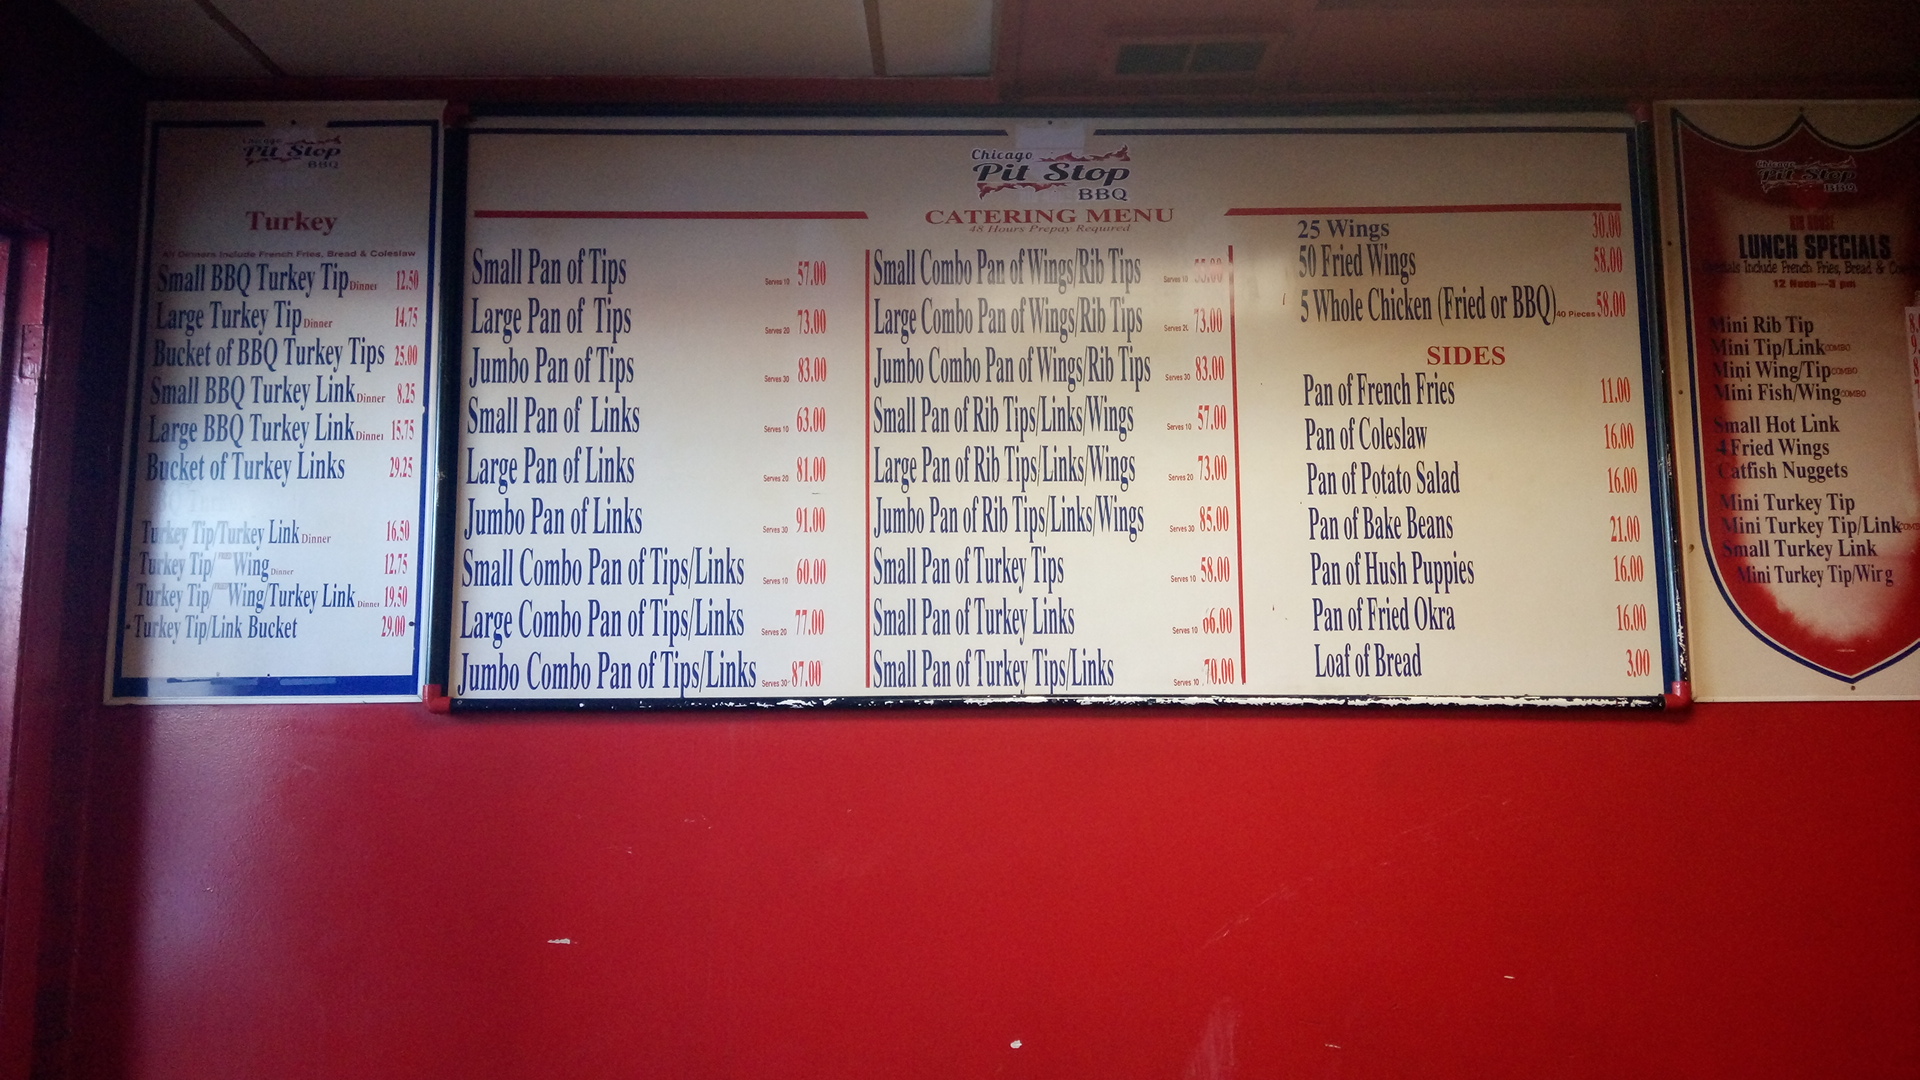 Chicago
Pit Stop
BBQ
Turkey
All Dinners Include French Fries, Bread & Coleslaw
Small BBQ Turkey Tip Dinner 12.50
Large Turkey Tip Dinner 14.75
Bucket of BBQ Turkey Tips 25.00
Small BBQ Turkey Link Dinner 8.25
Large BBQ Turkey Link Dinner 15.75
Bucket of Turkey Links 29.25
Turkey Tip/Turkey Link Dinner 16.50
Turkey Tip/ Wing Dinner 12.75
Turkey Tip/ Wing/Turkey Link Dinner 19.50
Turkey Tip/Link Bucket 29.00
Chicago
Pit Stop
BBQ
CATERING MENU
48 Hours Prepay Required
Small Pan of Tips Serves 10 57.00
Large Pan of Tips Serves 20 73.00
Jumbo Pan of Tips Serves 30 83.00
Small Pan of Links Serves 10 63.00
Large Pan of Links Serves 20 81.00
Jumbo Pan of Links Serves 30 91.00
Small Combo Pan of Tips/Links Serves 10 60.00
Large Combo Pan of Tips/Links Serves 20 77.00
Jumbo Combo Pan of Tips/Links Serves 30 87.00
Small Combo Pan of Wings/Rib Tips Serves 10 55.00
Large Combo Pan of Wings/Rib Tips Serves 73.00
Jumbo Combo Pan of Wings/Rib Tips Serves 30 83.00
Small Pan of Rib Tips/Links/Wings Serves 10 57.00
Large Pan of Rib Tips/Links/Wings Serves 20 73.00
Jumbo Pan of Rib Tips/Links/Wings Serves 30 85.00
Small Pan of Turkey Tips Serves 10 58.00
Small Pan of Turkey Links Serves 10 66.00
Small Pan of Turkey Tips/Links Serves 10 70.00
25 Wings 30.00
50 Fried Wings 58.00
5 Whole Chicken (Fried or BBQ) 40 Pieces 58.00
SIDES
Pan of French Fries 11.00
Pan of Coleslaw 16.00
Pan of Potato Salad 16.00
Pan of Bake Beans 21.00
Pan of Hush Puppies 16.00
Pan of Fried Okra 16.00
Loaf of Bread 3.00
Chicago
Pit Stop
BBQ
LUNCH SPECIALS
Specials Include French Fries, Bread &
12 Noon---3 pm
Mini Rib Tip
Mini Tip/Link COMBO
Mini Wing/Tip COMBO
Mini Fish/Wing COMBO
Small Hot Link
4 Fried Wings
Catfish Nuggets
Mini Turkey Tip
Mini Turkey Tip/Link
Small Turkey Link
Mini Turkey Tip/Wing